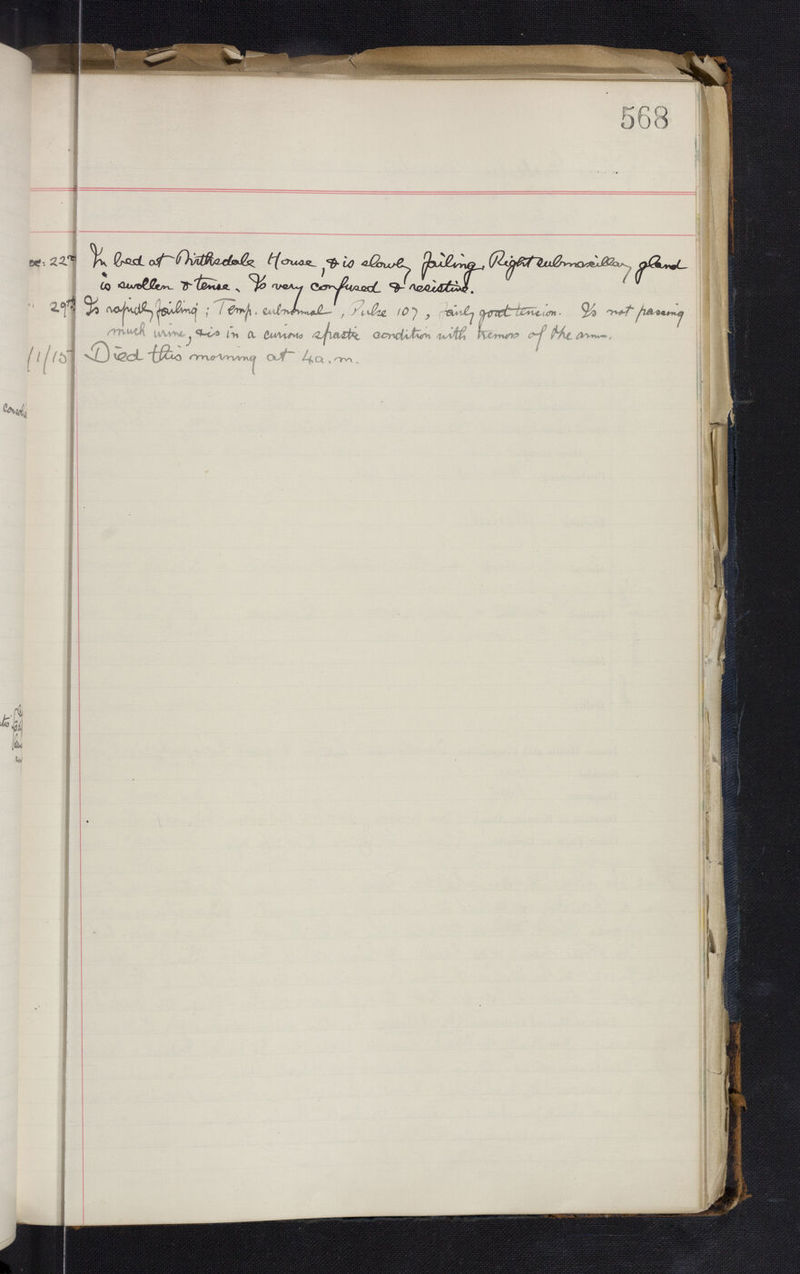 568
Dec. 22nd In bed at Nithsdale House, & is slowly failing. Right submaxillary gland
is swollen & tense. Is very confused & resistive.
" 29th Is rapidly failing; Temp. subnormal, Pulse 107, fairly good tension. Is not passing
much urine, & is in a curious spastic condition with tremors of the arms.
/1/15 Died this morning at 4 a.m.